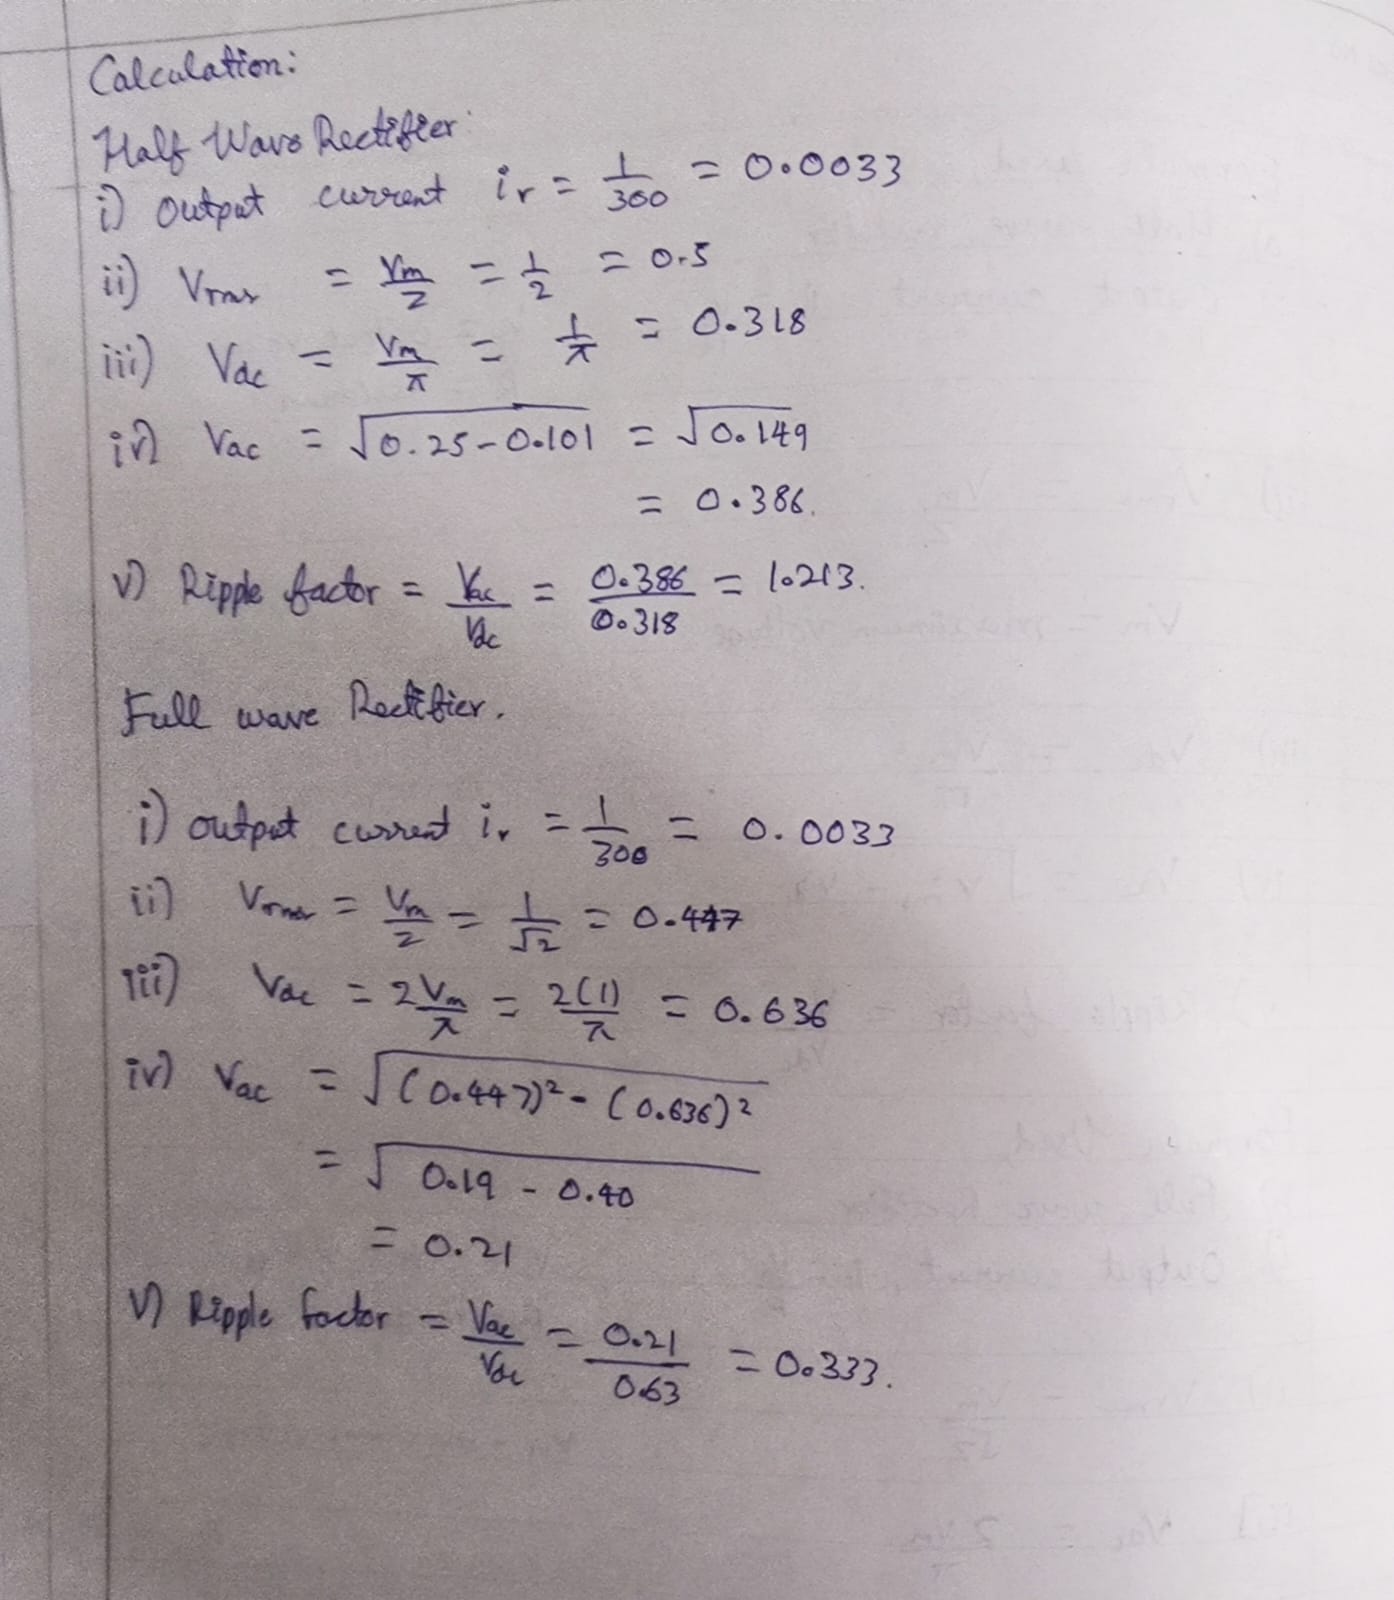 Calculation:
Half Wave Rectifier
i) Output current ir = 1/300 = 0.0033
ii) Vrms = Vm/2 = 1/2 = 0.5
iii) Vdc = Vm/π = 1/π = 0.318
iv) Vac = √0.25-0.101 = √0.149
= 0.386.
v) Ripple factor = Vac/Vdc = 0.386/0.318 = 1.213.
Full wave Rectifier.
i) output current ir = 1/300 = 0.0033
ii) Vrms = Vm/2 = 1/√2 = 0.447
iii) Vdc = 2Vm/π = 2(1)/π = 0.636
iv) Vac = √(0.447)² - (0.636)²
= √0.19 - 0.40
= 0.21
v) Ripple factor = Vac/Vdc = 0.21/0.63 = 0.333.